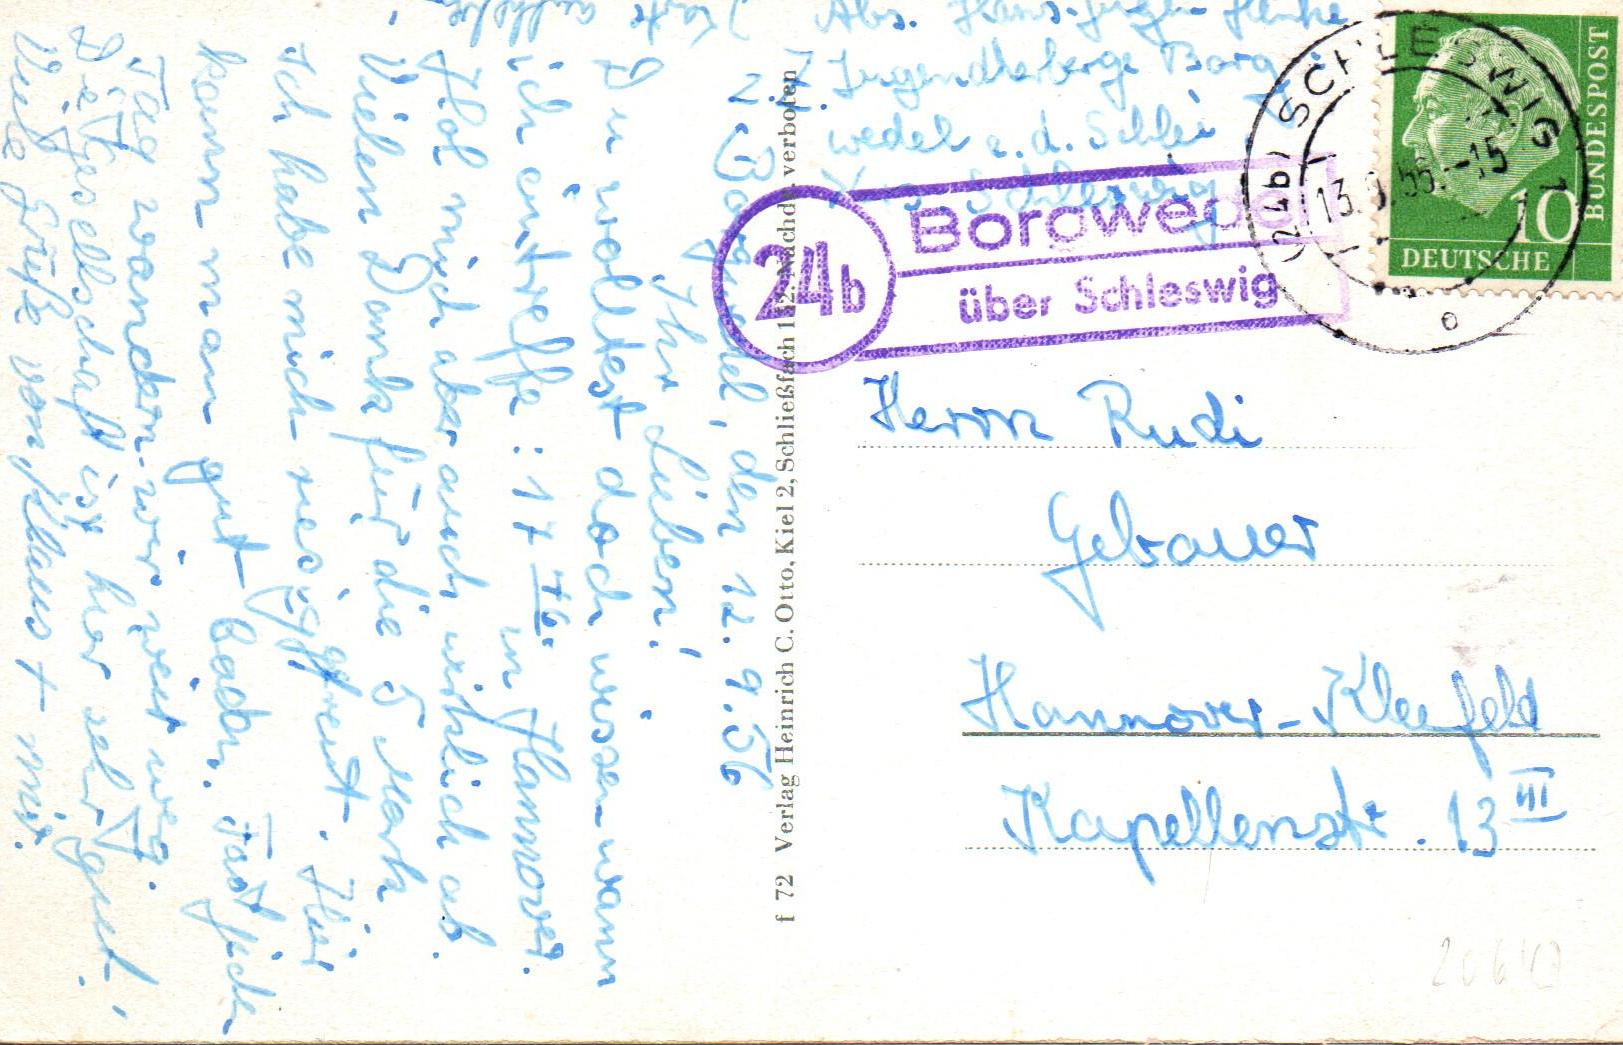 Abs. Hans-Jürgen Henke
z. Z. Jugendherberge Borg
wedel a. d. Schlei
Kreis Schleswig
24b
Borgwedel
über Schleswig
(24b) SCHLESWIG 1
13.9.56.-15
10
DEUTSCHE
BUNDESPOST
Herrn Rudi
Gebauer
Hannover-Kleefeld
Kapellenstr. 13 III
f 72 Verlag Heinrich C. Otto, Kiel 2, Schließfach 112. Nachdr. verboten
Borgwedel, den 12. 9. 56
Ihr Lieben!
Du wolltest doch wissen wann
ich eintreffe: 17 in Hannover.
Hol mich aber auch wirklich ab.
Vielen Dank für die 5 Mark
Ich habe mich riesig gefreut. Hier
kann man gut baden. Fast jeden
Tag wandern wir weit weg.
Die Gesellschaft ist hier sehr gut.
Viele Grüße von Klaus + mir.
Karte aufheben!